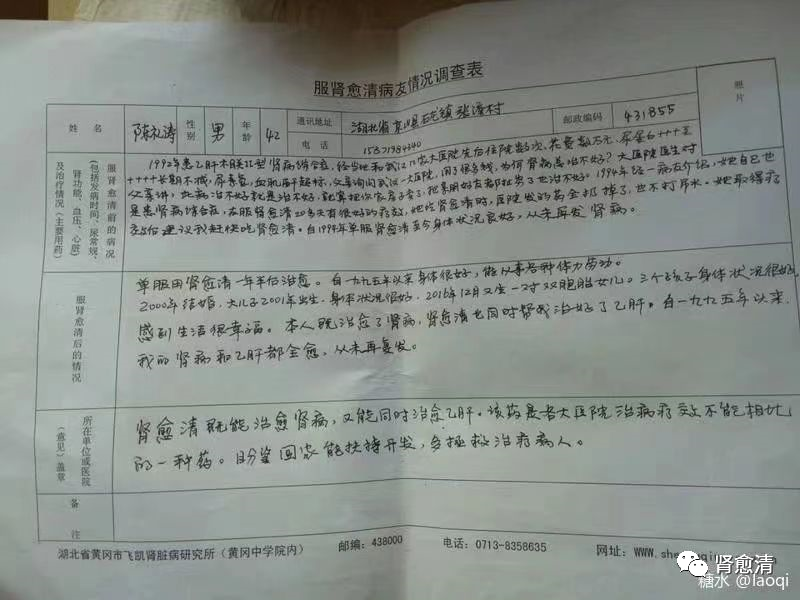 服肾愈清病友情况调查表
姓名 陈礼涛 性别 男 年龄 42 通讯地址 湖北省京山县石龙镇张湾村 邮政编码 431855 照片
电话 15871984340
服肾愈清前的病况
(包括发病时间、尿常规、肾功能、血压、心脏)
及治疗情况(主要用药)
1992年患乙肝本医II型肾病综合症,经当地和武汉几家大医院先后住院数次,花费数万元,尿蛋白+++至
++++长期不减,尿素氮,血肌酐超标,父亲询问武汉一大医院,用了很多钱,为何肾病总治不好?大医院医生对
父亲讲,此病治不好就是治不好,就算把你家房子卖了,把易朋好友都扯穷了也治不好。1994年经一病友介绍,她自己也
是患肾病综合症,在服肾愈清20多天有很好的疗效,她吃肾愈清时,医院发的药全扔掉了,也不打吊水。她取得疗
效后建议我赶快吃肾愈清。自1994年单服肾愈清至今身体状况良好,从未再发肾病。
服肾愈清后的情况
单服用肾愈清一年半后治愈。自一九九五年以来身体很好,能从事各种体力劳动。
2000年结婚,大儿子2001年出生,身体状况很好,2016年12月又生一对双胞胎女儿。三个孩子身体状况很好,
感到生活很幸福。本人既治愈了肾病,肾愈清也同时帮我治好了乙肝。自一九九五年以来,
我的肾病和乙肝都全愈,从未再复发。
所在单位或医院
(意见)盖章
肾愈清既能治愈肾病,又能同时治愈乙肝。该药是各大医院治病疗效不能相比
的一种药。盼望国家能扶持开发,多拯救治疗病人。
备注
湖北省黄冈市飞凯肾脏病研究所(黄冈中学院内) 邮编:438000 电话:0713-8358635 网址:www.she
肾愈清
糖水 @laoqi